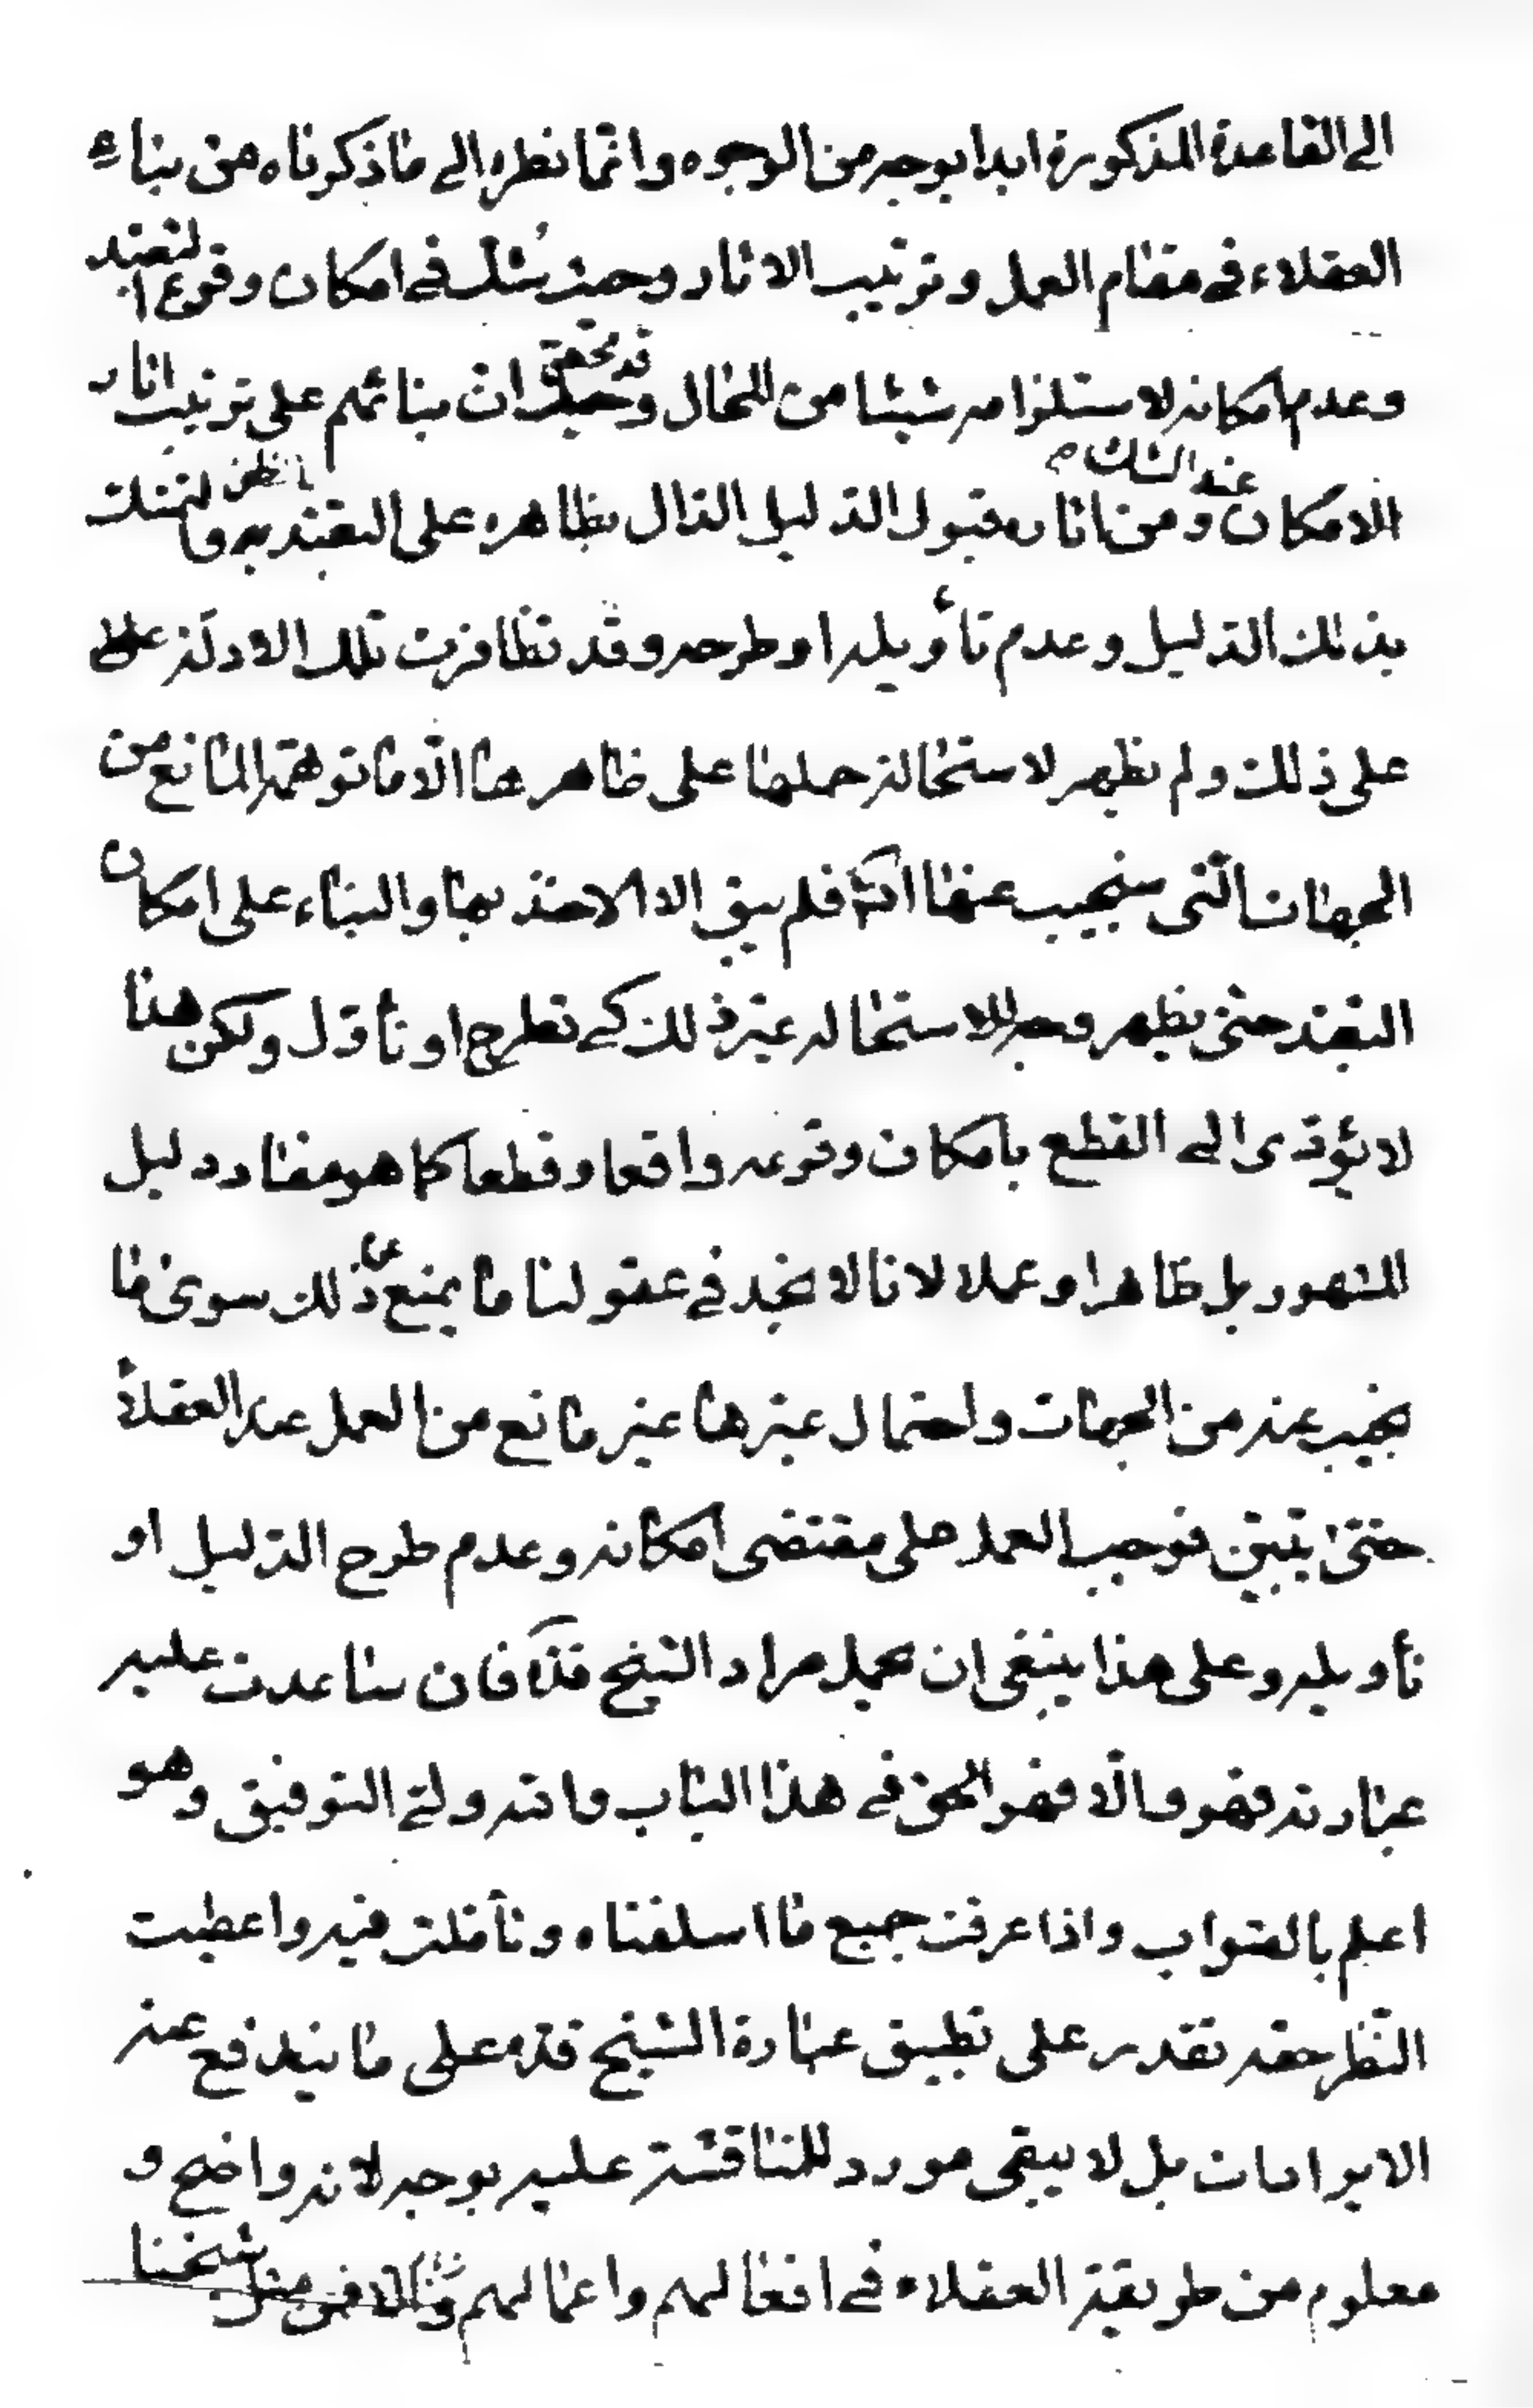 الى القاعدة المذكورة ابدا بوجه من الوجوه وانّما نظره الى ما ذكرناه من بناء
العقلاء في مقام العمل وترتيب الاثار وحيث يُشك في امكان وقوع التعبّد
وعدم امكانه لاستلزامه شيئا من المحال وقد تحقّق ان بنائهم على ترتيب اثار
الامكان عند الشك ومن اثاره قبول الدّليل الدّال بظاهره على التعبّد به والتمسّك
بذلك الدّليل وعدم تأويله او طرحه وقد تظافرت تلك الادلّة
على ذلك ولم يظهر لاستحالة حملها على ظاهرها الّا ما توهمّه المانع من
الجهات الّتي سنجيب عنها انشء فلم يبق الا الاخذ بها والبناء على امكان
التعبّد حتى يظهر وجه للاستحاله غير ذلك كي تطرح او تأوّل ولكن هذا
لا يؤدّى الى القطع بامكان وقوعه واقعا وقطعا كما هو مفاد دليل
المشهور بل ظاهرا وعملا لانا لا نجد في عقولنا ما يمنع عن ذلك سوى ما
نجيب عنه من الجهات واحتمال غيرها غير مانع من العمل عند العقلاء
حتّى يتبيّن فوجب العمل على مقتضى امكانه وعدم طرح الدّليل او
تأويله وعلى هذا ينبغي ان يحمل مراد الشيخ قدّه فان ساعدت عليه
عبارته فهو والّا فهو الحق في هذا الباب والله ولىّ التوفيق وهو
اعلم بالصّواب واذا عرفت جميع ما اسلفناه وتأمّلت فيه واعطيت
النّظر حقه تقدر على تطبيق عبارة الشيخ قدّه على ما يندفع عنه
الايرادات بل لا يبقى مورد للمناقشة عليه بوجه لانه واضح و
معلوم من طريقة العقلاء في افعالهم واعمالهم والّا فمن مثل شيخنا